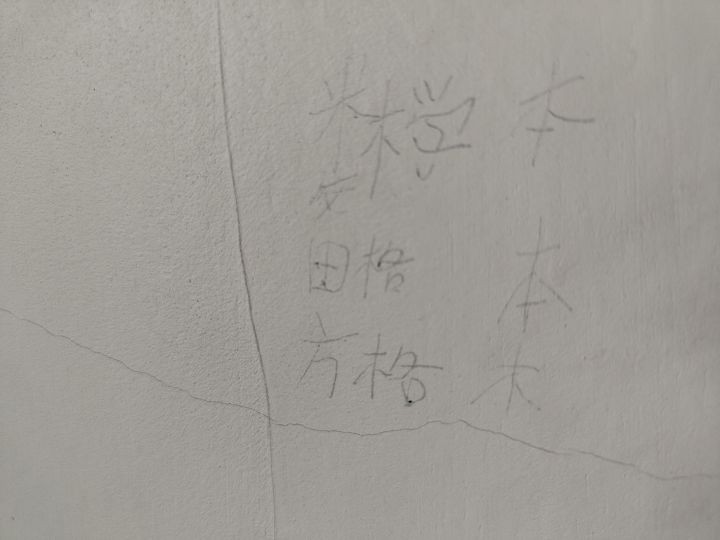 米木学 本
田格 本
方格 木